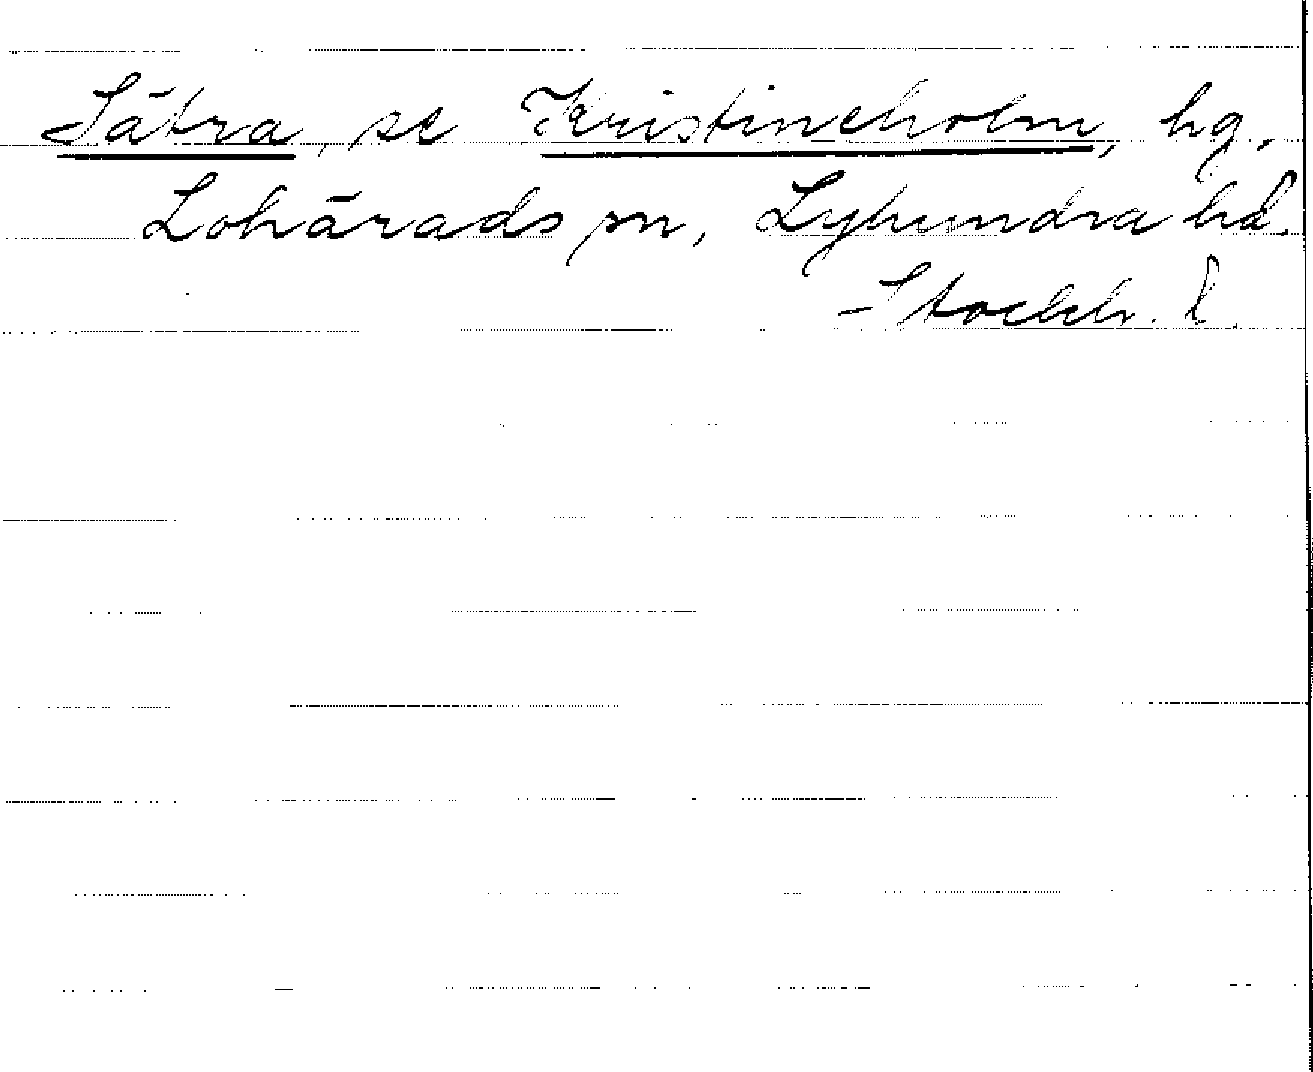 Sätra, se Kristineholm, hg,
Lohärads sn, Lyhundra hd.
Stockh. l.